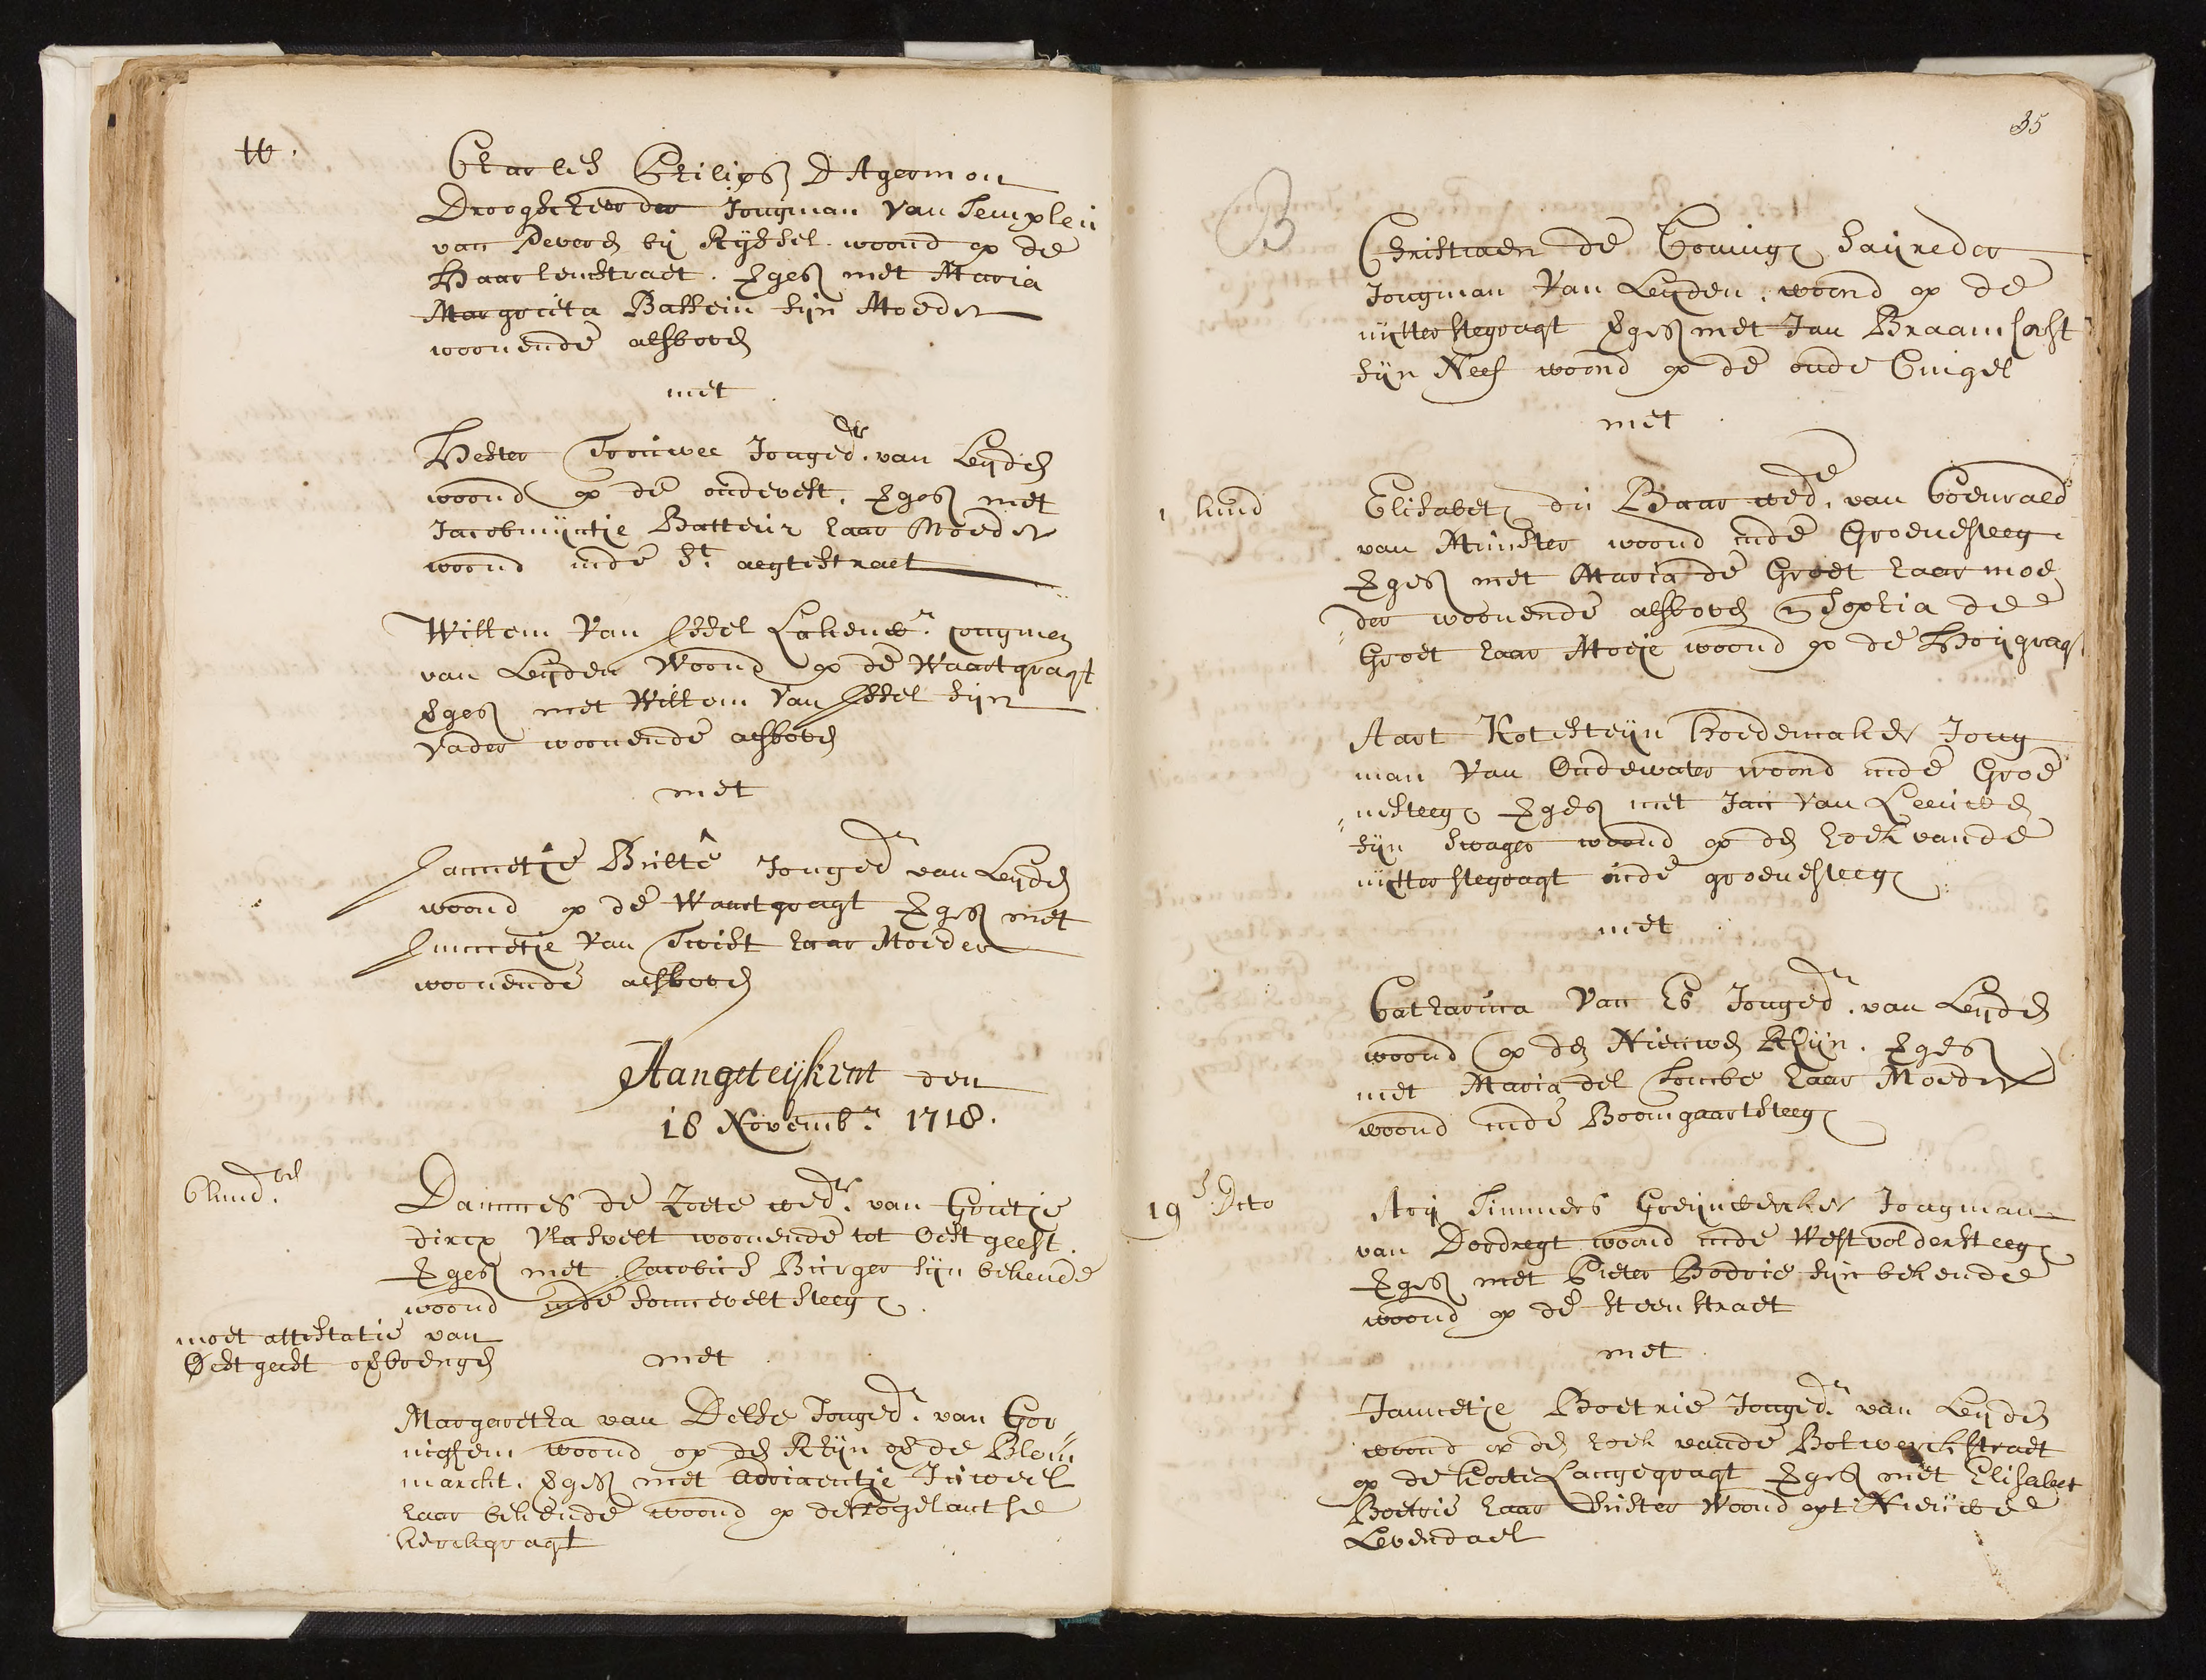 W.
Charles Philips D Agermon
Droogscheerder Jongman van Templen
van Pevers bij Ryssel. woond op de
Haarlemstraet. Vges met Maria
Margrieta Bassein sijn Moeder
woonende alsboven
met
Hester Trouwee Jonged.r van Leijden
woond op de oudevest. Vges met
Jacobmijntje Batteur haar Moeder
woond inde S.t aegtestraet
Willem Van Issel Lakenw.r jongman
van Leijden Woond op de Waartgragt
Vges met Willem Van Issel sijn
Vader woonende alsboven
met
Jannetje Bulté Jonged.r van Leijden
woond op de Waartgragt Vges met
Jannetje Van Twist haar Moeder
woonende alsboven
Aangeteijkent den
18 Novemb.r 1718.
6 kind.ren
Dammes de Zoete wed.r van Grietje
dircx Vlasvelt woonende tot Oestgeest.
Vges met Jacobus Burger sijn bekende
woond inde Sonneveltsteeg
moet attestatie van
Oestgeest opbrengen
met
Margaretha van Delse Jonged.r van Gor
nighem woond op den Rhijn of de Blom
marckt. Vges met Adriaentje Juweel
haar bekende woond op de Hogelantse
kerckgragt
35
B
Christiaen de Coning Saijreder
Jongman Van Leijden, woond op de
uijtterstegragt Vges met Jan Braamhorst
sijn Neef woond op de oude Cingel
met
1 kind
Elisabet du Baar wed.e van Coenraed
van Munster woond inde Groenesteeg
Vges met Maria de Groet haar moe
der woonende alsboven en Sophia de
Groet haar Moeije woond op de Hoijgragt
Aart Rotesteijn hoedemaker Jong
man Van Oudewater woond inde Groe
nesteeg Vges met Jan Van Leeuwen
sijn Swager woond op den hoek vande
uijtterstegragt inde groenesteeg
met
Catharina Van Es Jonged.r van Leijden
woond op den Nieuwen Rhijn. Vges
met Maria del Tombe haar Moeder
woond inde Boomgaartsteeg
19 D.cto
Arij Timmers Greijnwercker Jongman
van Dordregt woond inde Westvoldersteeg
Vges met Pieter Bodrie sijn bekende
woond op de Steenstraet
met
Jannetje Boetrie Jonged.r van Leijden
woond op den hoek vande Bolwerckstraet
op de Korte Langegragt Vges met Elisabet
Boetrie haar Suster Woond opt Nieuwe
Levendael